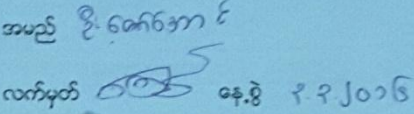 အမည် ဦးဇော်အောင်
လက်မှတ် နေ့စွဲ ၃.၃.၂၀၁၆